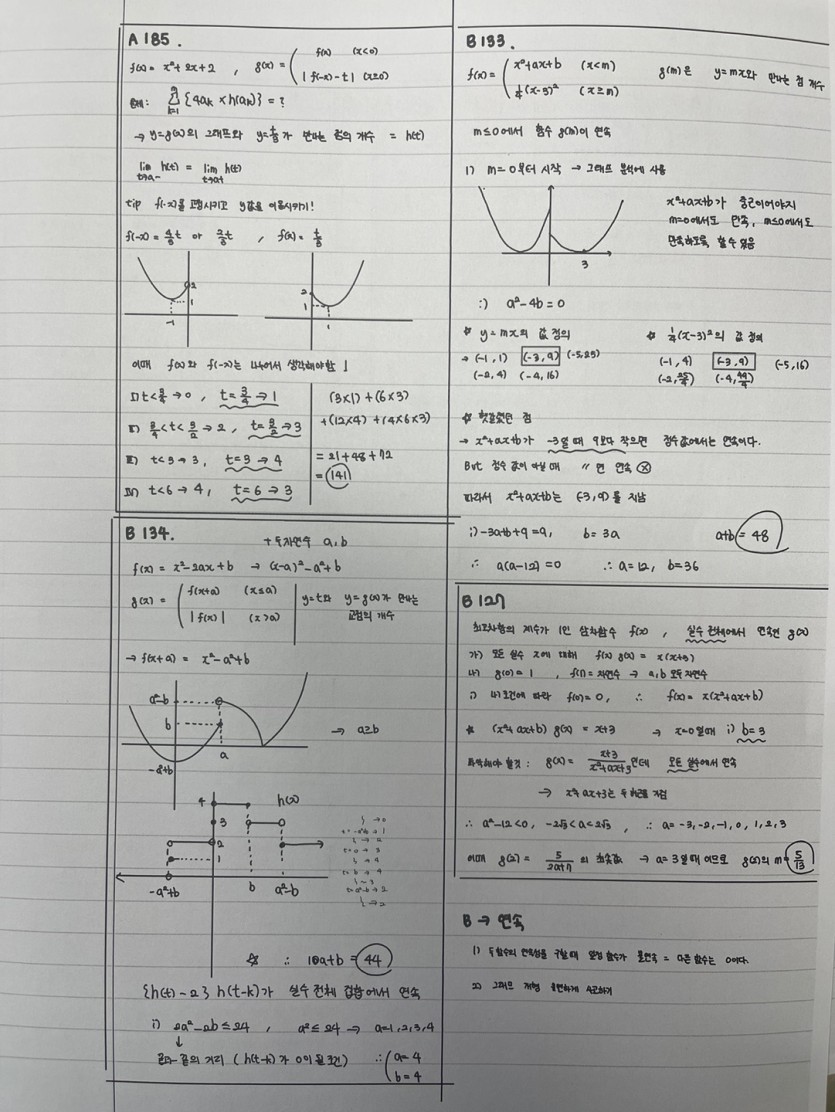 A 185.
f(x) = x²+2x+2 , g(x) = ( f(x) (x<0)
| f(-x)-t | (x≥0)
문제: Σ {4aₖ × h(aₖ)} = ?
→ y=g(x)의 그래프와 y=t/3 가 만나는 점의 개수 = h(t)
lim h(t) = lim h(t)
t→a- t→a+
tip f(-x)를 고정시키고 y값을 이동시키기!
f(-x) = 4/3 t or 2/3 t , f(x) = t/3
2
1
-1
2
1
1
이때 f(x)와 f(-x)는 나누어서 생각해야함!
→ 0 , t = 3/2 → 1
→ 2 , → 3
III) t<3 → 3, t=3 → 4
IV) t<6 → 4, t=6 → 3
(3×1) + (6×3)
+(12×4) + (4×6×3)
= 21 + 48 + 72
= 141
B 134.
+ 두 자연수 a, b
f(x) = x²-2ax+b → (x-a)²-a²+b
g(x) = ( f(x+a) (x≤a)
| f(x) | (x>a)
y=t와 y=g(x)가 만나는
교점의 개수
→ f(x+a) = x²-a²+b
a²-b
b
a
-a²+b
→ a≥b
4
h(x)
3
2
1
-a²+b b a²-b
☆ ∴ 10a+b = 44
{h(t)-2} h(t-k)가 실수 전체 집합에서 연속
i) 2a²-2b ≤ 24 , a² ≤ 24 → a=1,2,3,4
↓
끝의 거리 ( h(t-k)가 0이 될 조건)
∴ ( a=4
b=4
B 133.
f(x) = ( x²+ax+b (x<m)
1/4(x-3)² (x≥m)
g(m)은 y=mx와 만나는 점 개수
m≤0에서 함수 g(m)이 연속
1) m=0부터 시작 → 그래프 분석에 사용
3
x²+ax+b가 중근이어야지
m=0에서도 만족, m≤0에서도
만족하도록 할 수 있음
:) a²-4b=0
☆ y=mx의 값 정의
→ (-1, 1) (-3, 9) (-5,25)
(-2, 4) (-4, 16)
☆ 1/4(x-3)²의 값 정의
(-1, 4) (-3, 9) (-5,16)
(-2, 25/4) (-4, 49/4)
☆ 헷갈렸던 점
→ x²+ax+b가 -3일 때 9보다 작으면 정수값에서는 연속이다.
But 정수 값이 아닐 때 〃 면 연속 ⓧ
따라서 x²+ax+b는 (-3, 9)를 지남
;) -3a+b+9=9, b=3a
∴ a(a-12)=0 ∴ a=12, b=36
a+b = 48
B 127
최고차항의 계수가 1인 삼차함수 f(x) , 실수 전체에서 연속인 g(x)
가) 모든 실수 x에 대해 f(x) g(x) = x(x+3)
나) g(0)=1 , f(1)=자연수 → a,b 모두 자연수
i) 나) 조건에 따라 f(0)=0, ∴ f(x)=x(x²+ax+b)
☆ (x²+ax+b) g(x) = x+3 → x=0일때 i) b=3
파악해야 할것: g(x) = x+3/x²+ax+3 인데 모든 실수에서 연속
→ x²+ax+3는 두 허근을 가짐
∴ a²-12<0, -2√3<a<2√3 , ∴ a=-3,-2,-1,0,1,2,3
이때 g(2) = 5/2a+7 의 최솟값 → a=3일때 이므로 g(x)의 m = 5/13
B → 연속
1) 두 함수의 연속성을 구할때 한쪽 함수가 불연속 = 다른 함수는 0이다.
2) 그래프 개형 하게